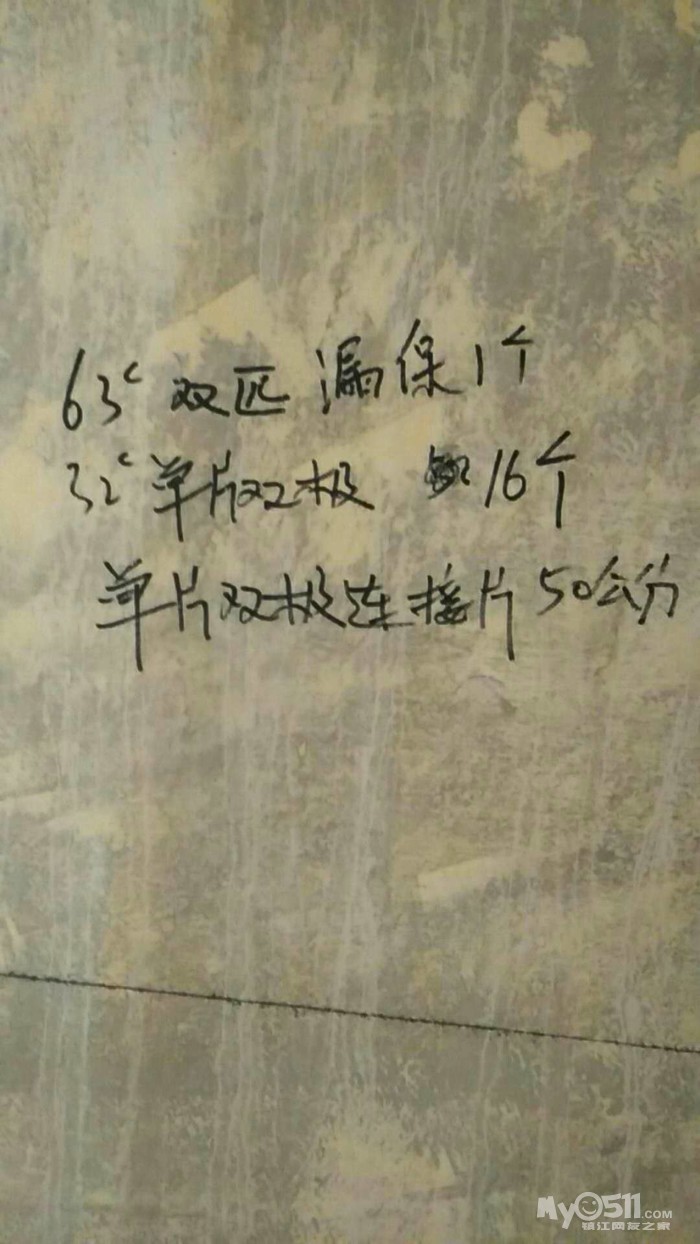 63c 双匹 漏保1个
32c 单片双极 16个
单片双极连接片50公分
My0511.COM
镇江网友之家